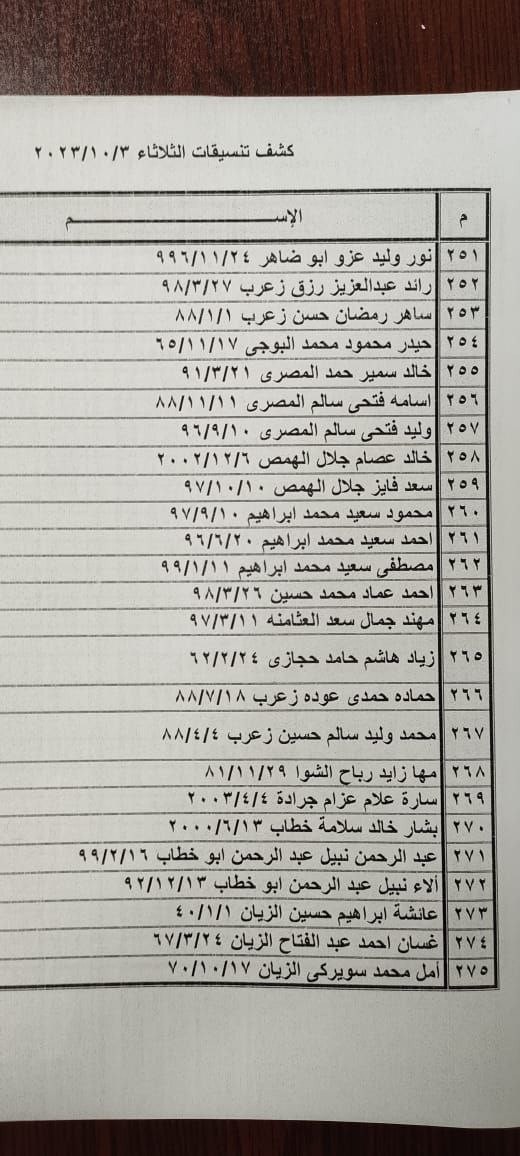 كشف تنسيقات الثلاثاء ٢٠٢٣/١٠/٣
م الإســـــــــــــــم
٢٥١ نور وليد عزو ابو ضاهر ٩٩٦/١١/٢٤
٢٥٢ رائد عبدالعزيز رزق زعرب ٩٨/٣/٢٧
٢٥٣ ساهر رمضان حسن زعرب ٨٨/١/١
٢٥٤ حيدر محمود محمد البوجى ٦٥/١١/١٧
٢٥٥ خالد سمير حمد المصرى ٩١/٣/٢١
٢٥٦ اسامه فتحى سالم المصرى ٨٨/١١/١١
٢٥٧ وليد فتحى سالم المصرى ٩٦/٩/١٠
٢٥٨ خالد عصام جلال الهمص ٢٠٠٢/١٢/٦
٢٥٩ سعد فايز جلال الهمص ٩٧/١٠/١٠
٢٦٠ محمود سعيد محمد ابراهيم ٩٧/٩/١٠
٢٦١ احمد سعيد محمد ابراهيم ٩٦/٦/٢٠
٢٦٢ مصطفى سعيد محمد ابراهيم ٩٩/١/١١
٢٦٣ احمد عماد محمد حسين ٩٨/٣/٢٦
٢٦٤ مهند جمال سعد العثامنه ٩٧/٣/١١
٢٦٥ زياد هاشم حامد حجازى ٦٢/٢/٢٤
٢٦٦ حماده حمدى عوده زعرب ٨٨/٧/١٨
٢٦٧ محمد وليد سالم حسين زعرب ٨٨/٤/٤
٢٦٨ مها زايد رباح الشوا ٨١/١١/٢٩
٢٦٩ سارة علام عزام جرادة ٢٠٠٣/٤/٤
٢٧٠ بشار خالد سلامة خطاب ٢٠٠٠/٦/١٣
٢٧١ عبد الرحمن نبيل عبد الرحمن ابو خطاب ٩٩/٢/١٦
٢٧٢ ألاء نبيل عبد الرحمن ابو خطاب ٩٢/١٢/١٣
٢٧٣ عائشة ابراهيم حسين الزيان ٤٠/١/١
٢٧٤ غسان احمد عبد الفتاح الزيان ٦٧/٣/٢٤
٢٧٥ أمل محمد سويركى الزيان ٧٠/١٠/١٧